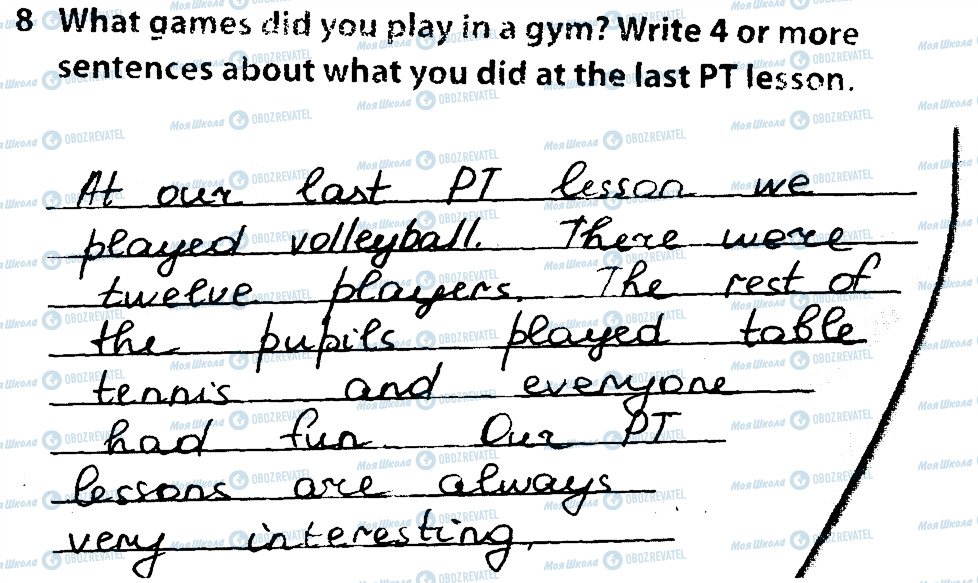 8 What games did you play in a gym? Write 4 or more
sentences about what you did at the last PT lesson.
At our last PT lesson we
played volleyball. There were
twelve players. The rest of
the pupils played table
tennis and everyone
had fun. Our PT
lessons are always
very interesting.